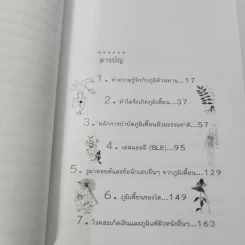 สารบัญ
1. ทำความรู้จักกับภูมิต้านทาน...17
2. ทำไมจึงเกิดภูมิเพี้ยน...37
3. หลักการบำบัดภูมิเพี้ยนด้วยธรรมชาติ...57
4. เอสแอลอี (SLE)...95
5. รูมาตอยด์และข้ออักเสบอื่นๆ จากภูมิเพี้ยน...129
6. ภูมิเพี้ยนของไต...149
7. โรคสะเก็ดเงินและภูมิแพ้ผิวหนังอื่นๆ...163